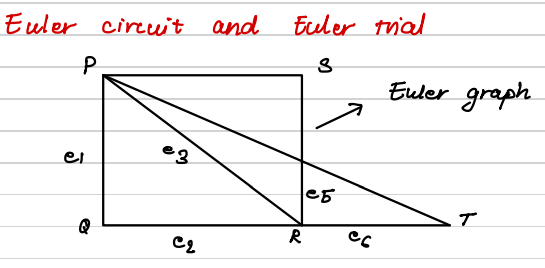 Euler circuit and Euler trial
P S
Euler graph
e1 e3
e5
Q e2 R e6 T